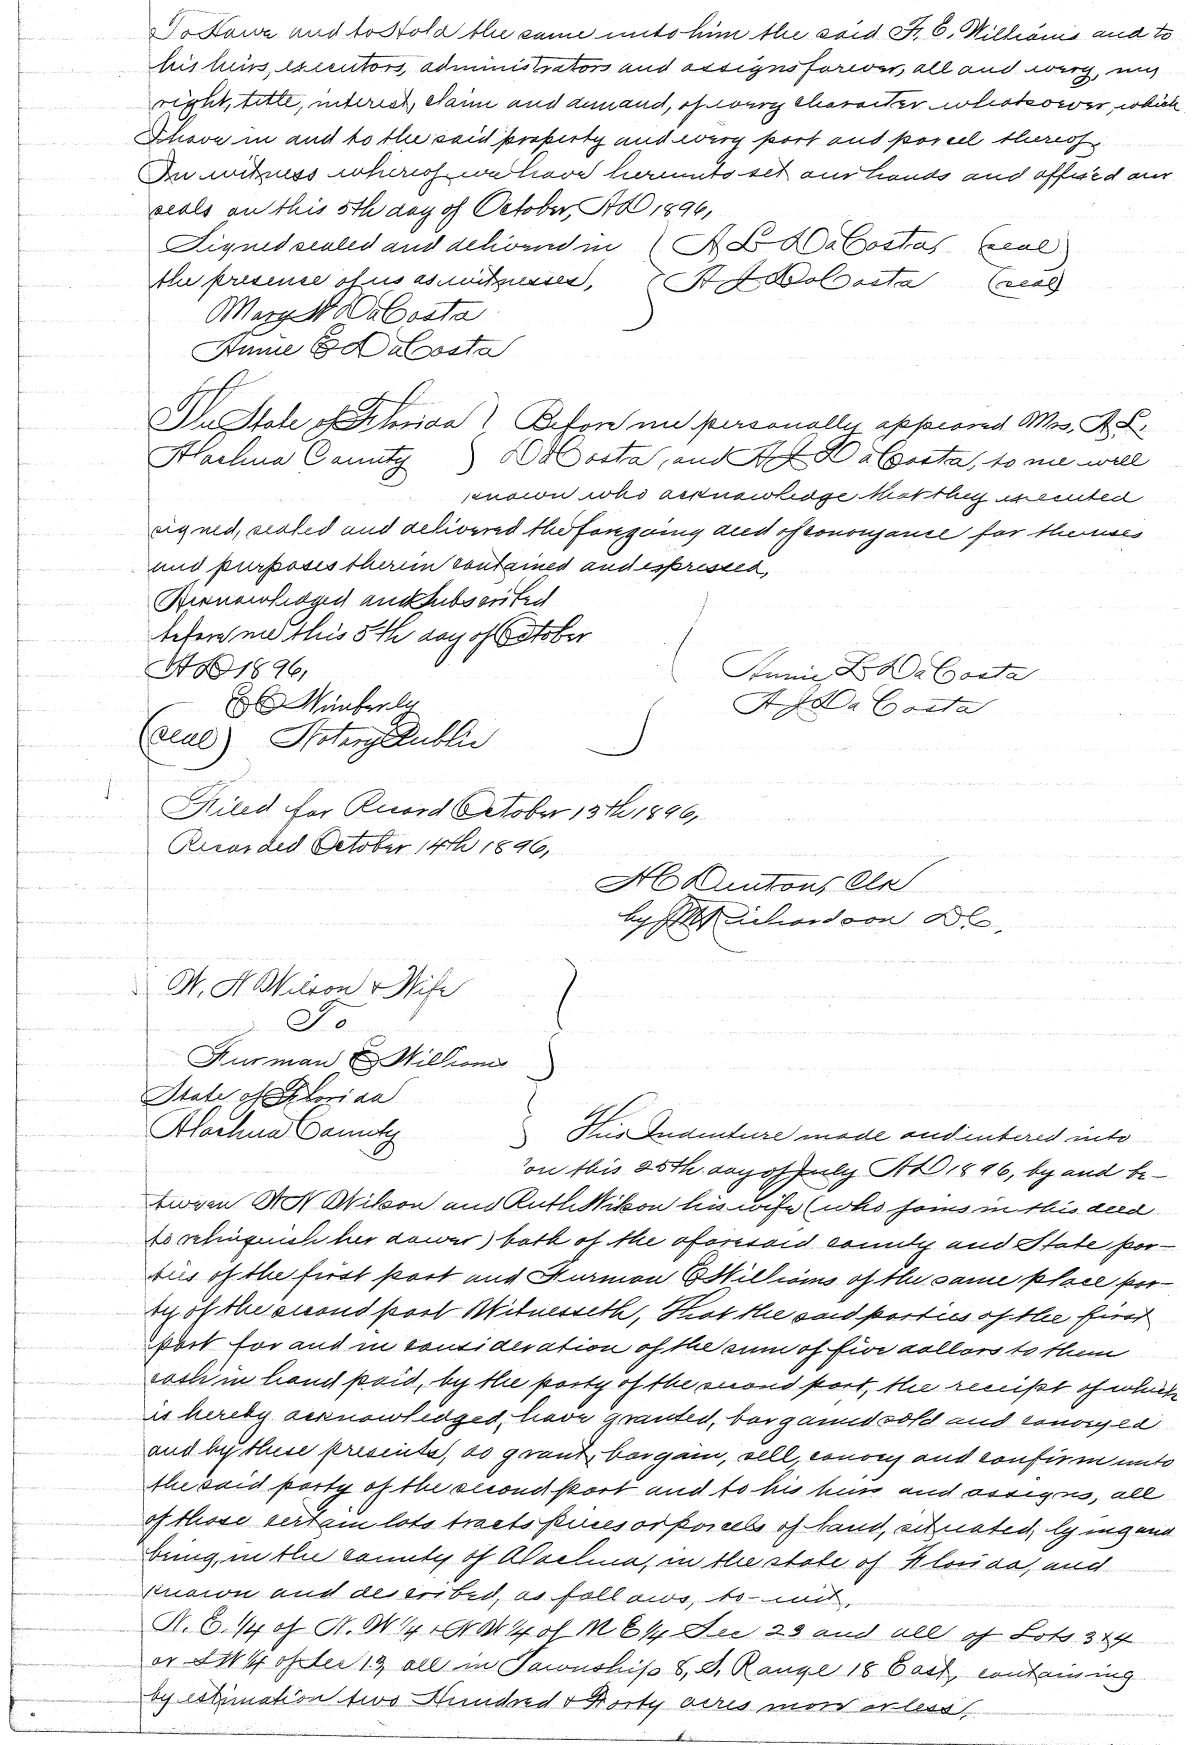 To Have and to Hold the same unto him the said F. E. Williams and to
his heirs, executors, administrators and assigns forever, all and every, my
right, title, interest, claim and demand, of every character whatsoever, which
I have in and to the said property and every part and parcel thereof.
In witness whereof we have hereunto set our hands and affixed our
seals on this 5th day of October, AD 1896,
Signed sealed and delivered in A L DaCosta (seal)
the presence of us as witnesses, A J DaCosta (seal)
Mary W DaCosta
Annie E DaCosta
The State of Florida } Before me personally appeared Mrs, A. L.
Alachua County } DaCosta, and A J DaCosta, to me well
known who acknowledge that they executed
signed, sealed and delivered the foregoing deed of conveyance for the uses
and purposes therein contained and expressed,
Acknowledged and subscribed
before me this 5th day of October
AD 1896,
Annie L DaCosta
A J Da Costa
Wimberly
(seal) Notary Public
Filed for Record October 13th 1896,
Recorded October 14th 1896,
H C Dentons, Clk
by Richardson D C,
W. H Wilson & Wife
To
Furman E Williams
State of Florida
Alachua County } This Indenture made and entered into
on this 25th day of July AD 1896, by and be-
tween W H Wilson and Ruth Wilson his wife (who joins in this deed
to relinquish her dower) both of the aforesaid county and State par-
ties of the first part and Furman E Williams of the same place par-
ty of the second part Witnesseth, That the said parties of the first
part for and in consideration of the sum of five dollars to them
each in hand paid, by the party of the second part, the receipt of which
is hereby acknowledged, have granted, bargained sold and conveyed
and by these presents, do grant, bargain, sell, convey and confirm unto
the said party of the second part and to his heirs and assigns, all
of those certain lots tracts pieces or parcels of land, situated, lying and
being, in the county of Alachua, in the state of Florida, and
known and described, as follows, to-wit,
N. E. 1/4 of N. W 1/4 & N W 1/4 of N E 1/4 Sec 23 and all of Lots 3 & 4
or S W 1/4 of Sec 13, all in Township 8, S, Range 18 East, containing
by estimation two Hundred & Forty acres more or less,